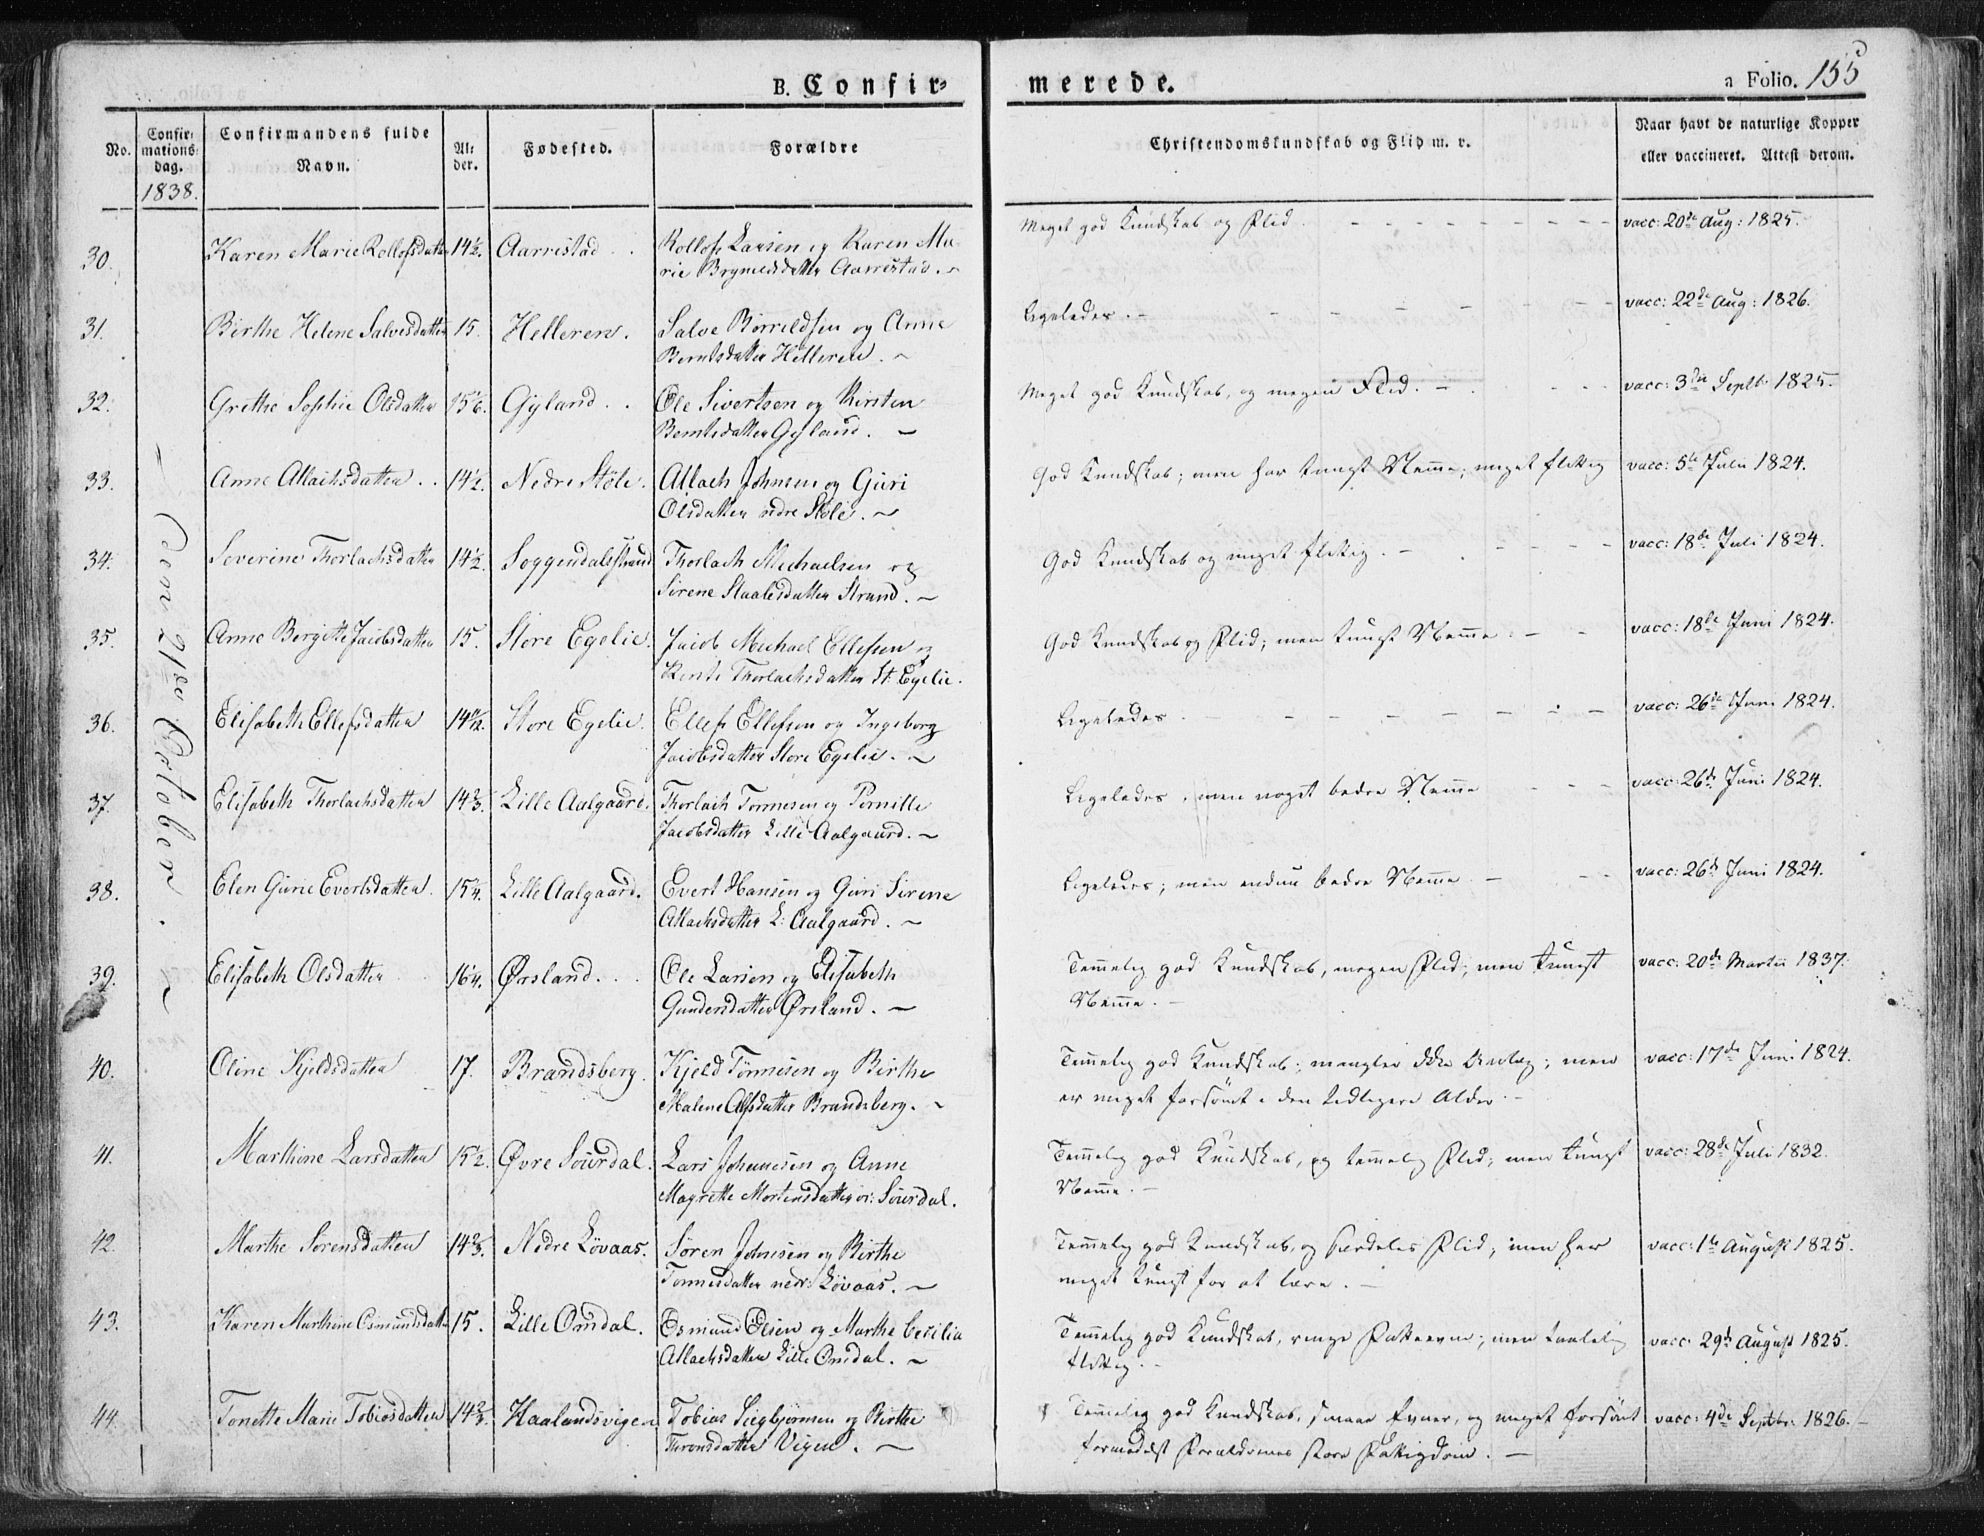 B. Confir-
merede.
a Folio. 155
No.
Confir-
mations-
dag.
1838.
Confirmandens fulde
Navn.
Al-
der.
Fødested.
Forældre
Christendomskundskab og Flid m. v.
Naar havt de naturlige Kopper
eller vaccineret. Attest derom.
Den 21de October.
30. Karen Marie Rollofsdatter 14½. Aarrestad Rollof Larsen og Karen Ma- Meget god Kundskab og Flid. vacc: 20de Aug: 1825.
rie Aarrestad.
31. Birthe Helene Salvesdatter 15. Helleren. Salve Børrildsen og Anne Ligeledes. vacc: 22de Aug: 1826.
Berntsdatter Helleren.
32. Grethe Sophie Olsdatter 15⅙. Gyland Ole Sivertsen og Kirsten Meget god Kundskab, og megen Flid. vacc: 3die Septb. 1825.
Berntsdatter Gyland.
33. Anne Atlachsdatter 14½. Nedre Støle. Atlach Johnsen og Guri God Kundskab; men har tungt Nemme; meget flittig vacc: 5te Julii 1824.
Olsdatter nedre Støle.
34. Severine Thorlachsdatter 14½. Soggendalsstrand Thorlach Michaelsen og God Kundskab og meget flittig. vacc: 18de Juli 1824.
Sirene Staalesdatter Strand.
35. Anne Bergitte Jacobsdatter 15. Store Egelie. Jacob Michael Ellefsen og God Kundskab og Flid; men tungt Nemme. vacc: 18de Juni 1824.
Thorlachsdatter St: Egelie.
36. Elisabeth Ellefsdatter 14½. Store Egelie. Ellef Ellefsen og Ingeborg Ligeledes. vacc: 26de Juni 1824.
Jacobsdatter Store Egelie.
37. Elisabeth Thorlachsdatter 14⅔. Lille Aalgaard. Thorlach Tønnesen og Pernille Ligeledes, men noget bedre Nemme vacc: 26de Juni 1824.
Jacobsdatter Lille Aalgaard.
38. Elen Gurie Evertsdatter. 15¼. Lille Aalgaard. Evert Hansen og Guri Sirene Ligeledes; men endnu bedre Nemme. vacc: 26de Juni 1824.
Atlachsdatter L: Aalgaard.
39. Elisabeth Olsdatter 16¼. Ørsland. Ole Larsen og Elisabeth Temmelig god Kundskab, megen Flid; men tungt vacc: 20de Martii 1837.
Gundersdatter Ørsland. Nemme.
40. Oline Kjeldsdatter 17. Brandsberg. Kjeld Tønnesen og Birthe Temmelig god Kundskab; mangler ikke Anlæg; men vacc: 17de Juni 1824.
Malene Alfsdatter Brandsberg. er meget forsømt i den tidligere Alder.
41. Marthine Larsdatter 15½. Øvre Suurdal. Lars Johannesen og Anne Temmelig god Kundskab, og temmelig Flid; men tungt vacc: 28de Juli 1832.
Magrethe Mortensdatter ø: Suurdal. Nemme.
42. Marthe Sørensdatter 14⅔. Nedre Løvaas. Søren Johnsen og Birthe Temmelig god Kundskab, og særdeles Flid; men har vacc: 1te August 1825.
Tønnesdatter nedr: Løvaas. meget tungt for at lære.
43. Karen Marthine Osmundsdatter 15. Lille Omdal. Osmund Olsen og Marthe Cecilia Temmelig god Kundskab, ringe Fatteevne; men taalelig vacc: 29de August 1825.
Atlachsdatter Lille Omdal. flittig.
44. Tonette Marie Tobiasdatter 14⅔. Haalandsvigen Tobias Siegbjørnsen og Birthe Temmelig god Kundskab, smaae Evner, og meget forsømt vacc: 4de Septbr. 1826.
Thronsdatter Vigen. formedelst Forældrenes store Fattigdom.